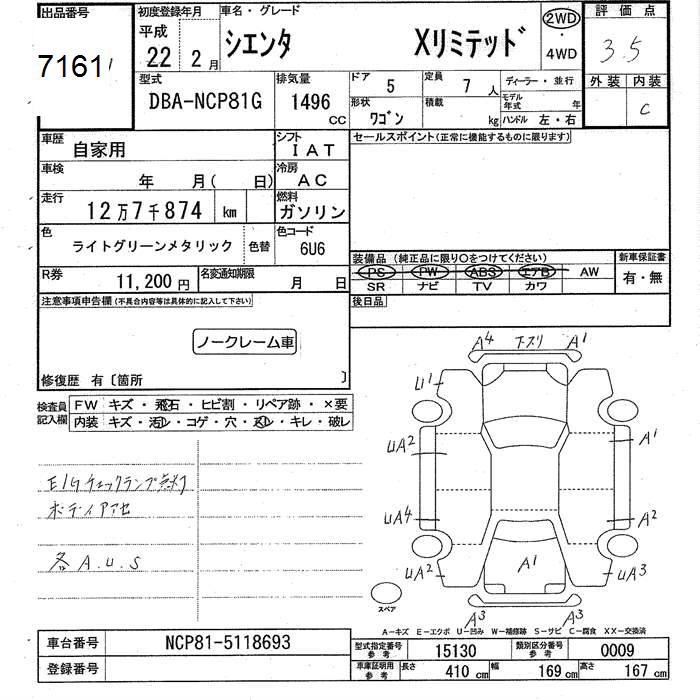 出品番号
7161
初度登録年月
平成
22年 2月
車名・グレード
シエンタ Xリミテッド
2WD
・
4WD
評価点
3.5
外装 内装
C
型式
DBA-NCP81G
排気量
1496
CC
ドア 5
定員 7人
ディーラー・並行
モデル年式 年
形状 ワゴン
積載 kg
ハンドル 左・右
車歴
自家用
シフト
IAT
セールスポイント(正常に機能するものに限ります)
車検
年 月( 日)
冷房
AC
走行
12万7千874 km
燃料
ガソリン
色
ライトグリーンメタリック
色替
色コード
6U6
装備品(純正品に限り○をつけてください)
PS PW ABS エアB AW
SR ナビ TV カワ
新車保証書
有・無
R券
11,200円
名変通知期限
月 日
後日品
注意事項申告欄(不具合内容等は具体的に記入して下さい)
ノークレーム車
修復歴 有〔箇所 〕
検査員
記入欄
FW キズ・飛石・ヒビ割・リペア跡・×要
内装 キズ・汚れ・コゲ・穴・スレ・キレ・破レ
E/Gチェックランプ点灯
ボディアアセ
各A.U.S
A4 A1
U1
UA2 A1
UA4 A2
A1
UA2 UA3
A3 A3
スペア
A-キズ E-エクボ U-凹み W-補修跡 S-サビ C-腐食 XX-交換済
車台番号
NCP81-5118693
登録番号
型式指定番号
参考
15130
類別区分番号
参考
0009
車庫証明用
参考
長さ 410cm
幅 169cm
高さ 167cm